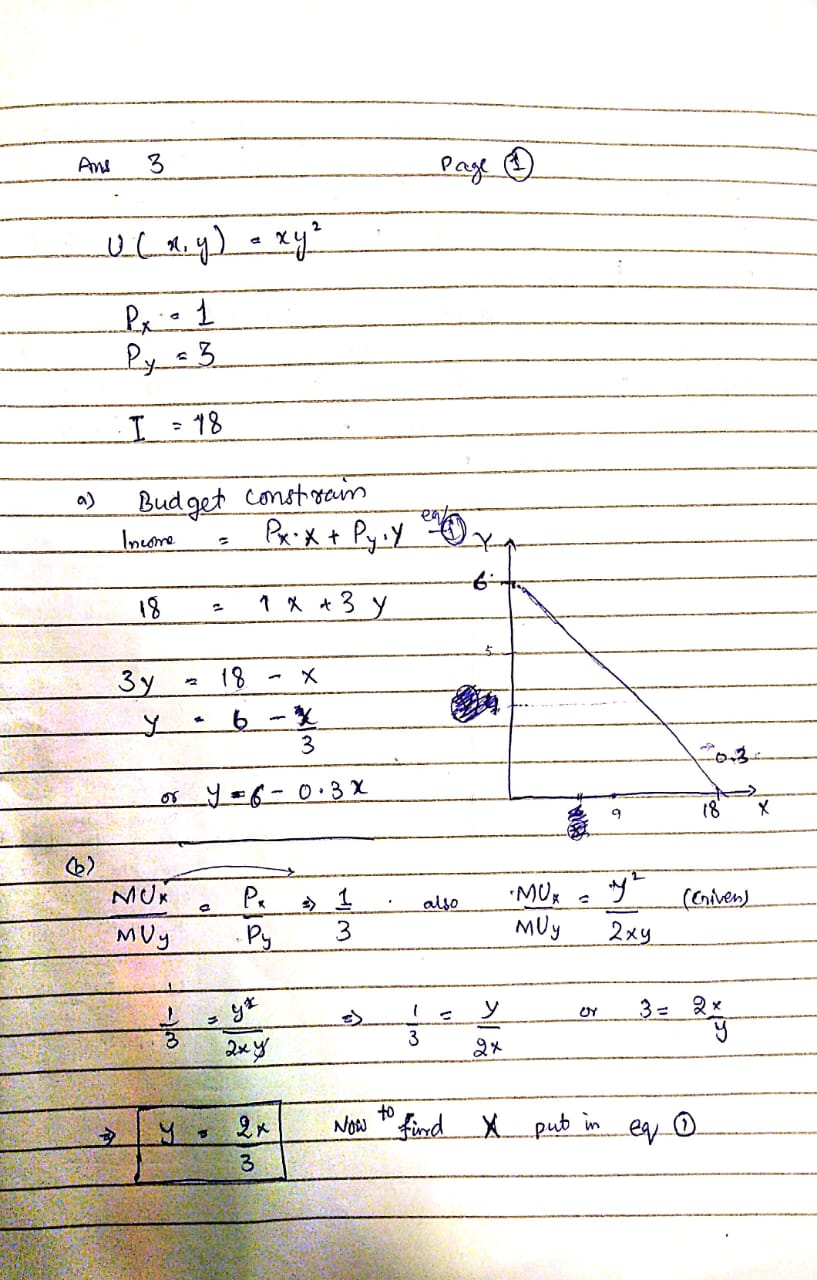 Ans 3 Page ①
U(x,y) = xy²
Px = 1
Py = 3
I = 18
a) Budget constrain
Income = Px·X + Py·Y eq ①
18 = 1x + 3y
3y = 18 - x
y = 6 - x/3
or y = 6 - 0.3x
Y
6
5
-0.3
9 18 X
(b)
MUx/MUy = Px/Py ⇒ 1/3 . also MUx/MUy = y²/2xy (Given)
1/3 = y²/2xy ⇒ 1/3 = y/2x or 3 = 2x/y
⇒ y = 2x/3 Now to find X put in eq ①